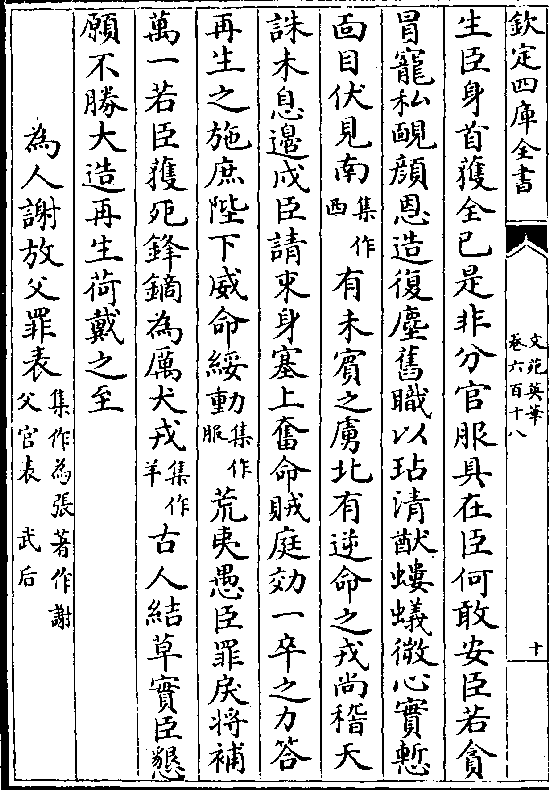 欽定四庫全書
文苑英華
卷六百十八
十
生臣身首獲全已是非分官服具在臣何敢安臣若貪
冒寵私靦顔恩造復塵舊職以玷清猷螻蟻微心實慙
面目伏見南集作西有未賓之虜北有逆命之戎尚稽天
誅未息邊戍臣請束身塞上奮命賊庭効一卒之力答
再生之施庶陛下威命綏動集作服荒夷愚臣罪戾將補
萬一若臣獲死鋒鏑為厲犬戎集作羊古人結草實臣懇
願不勝大造再生荷戴之至
為人謝放父罪表集作為張著作謝父官表 武后